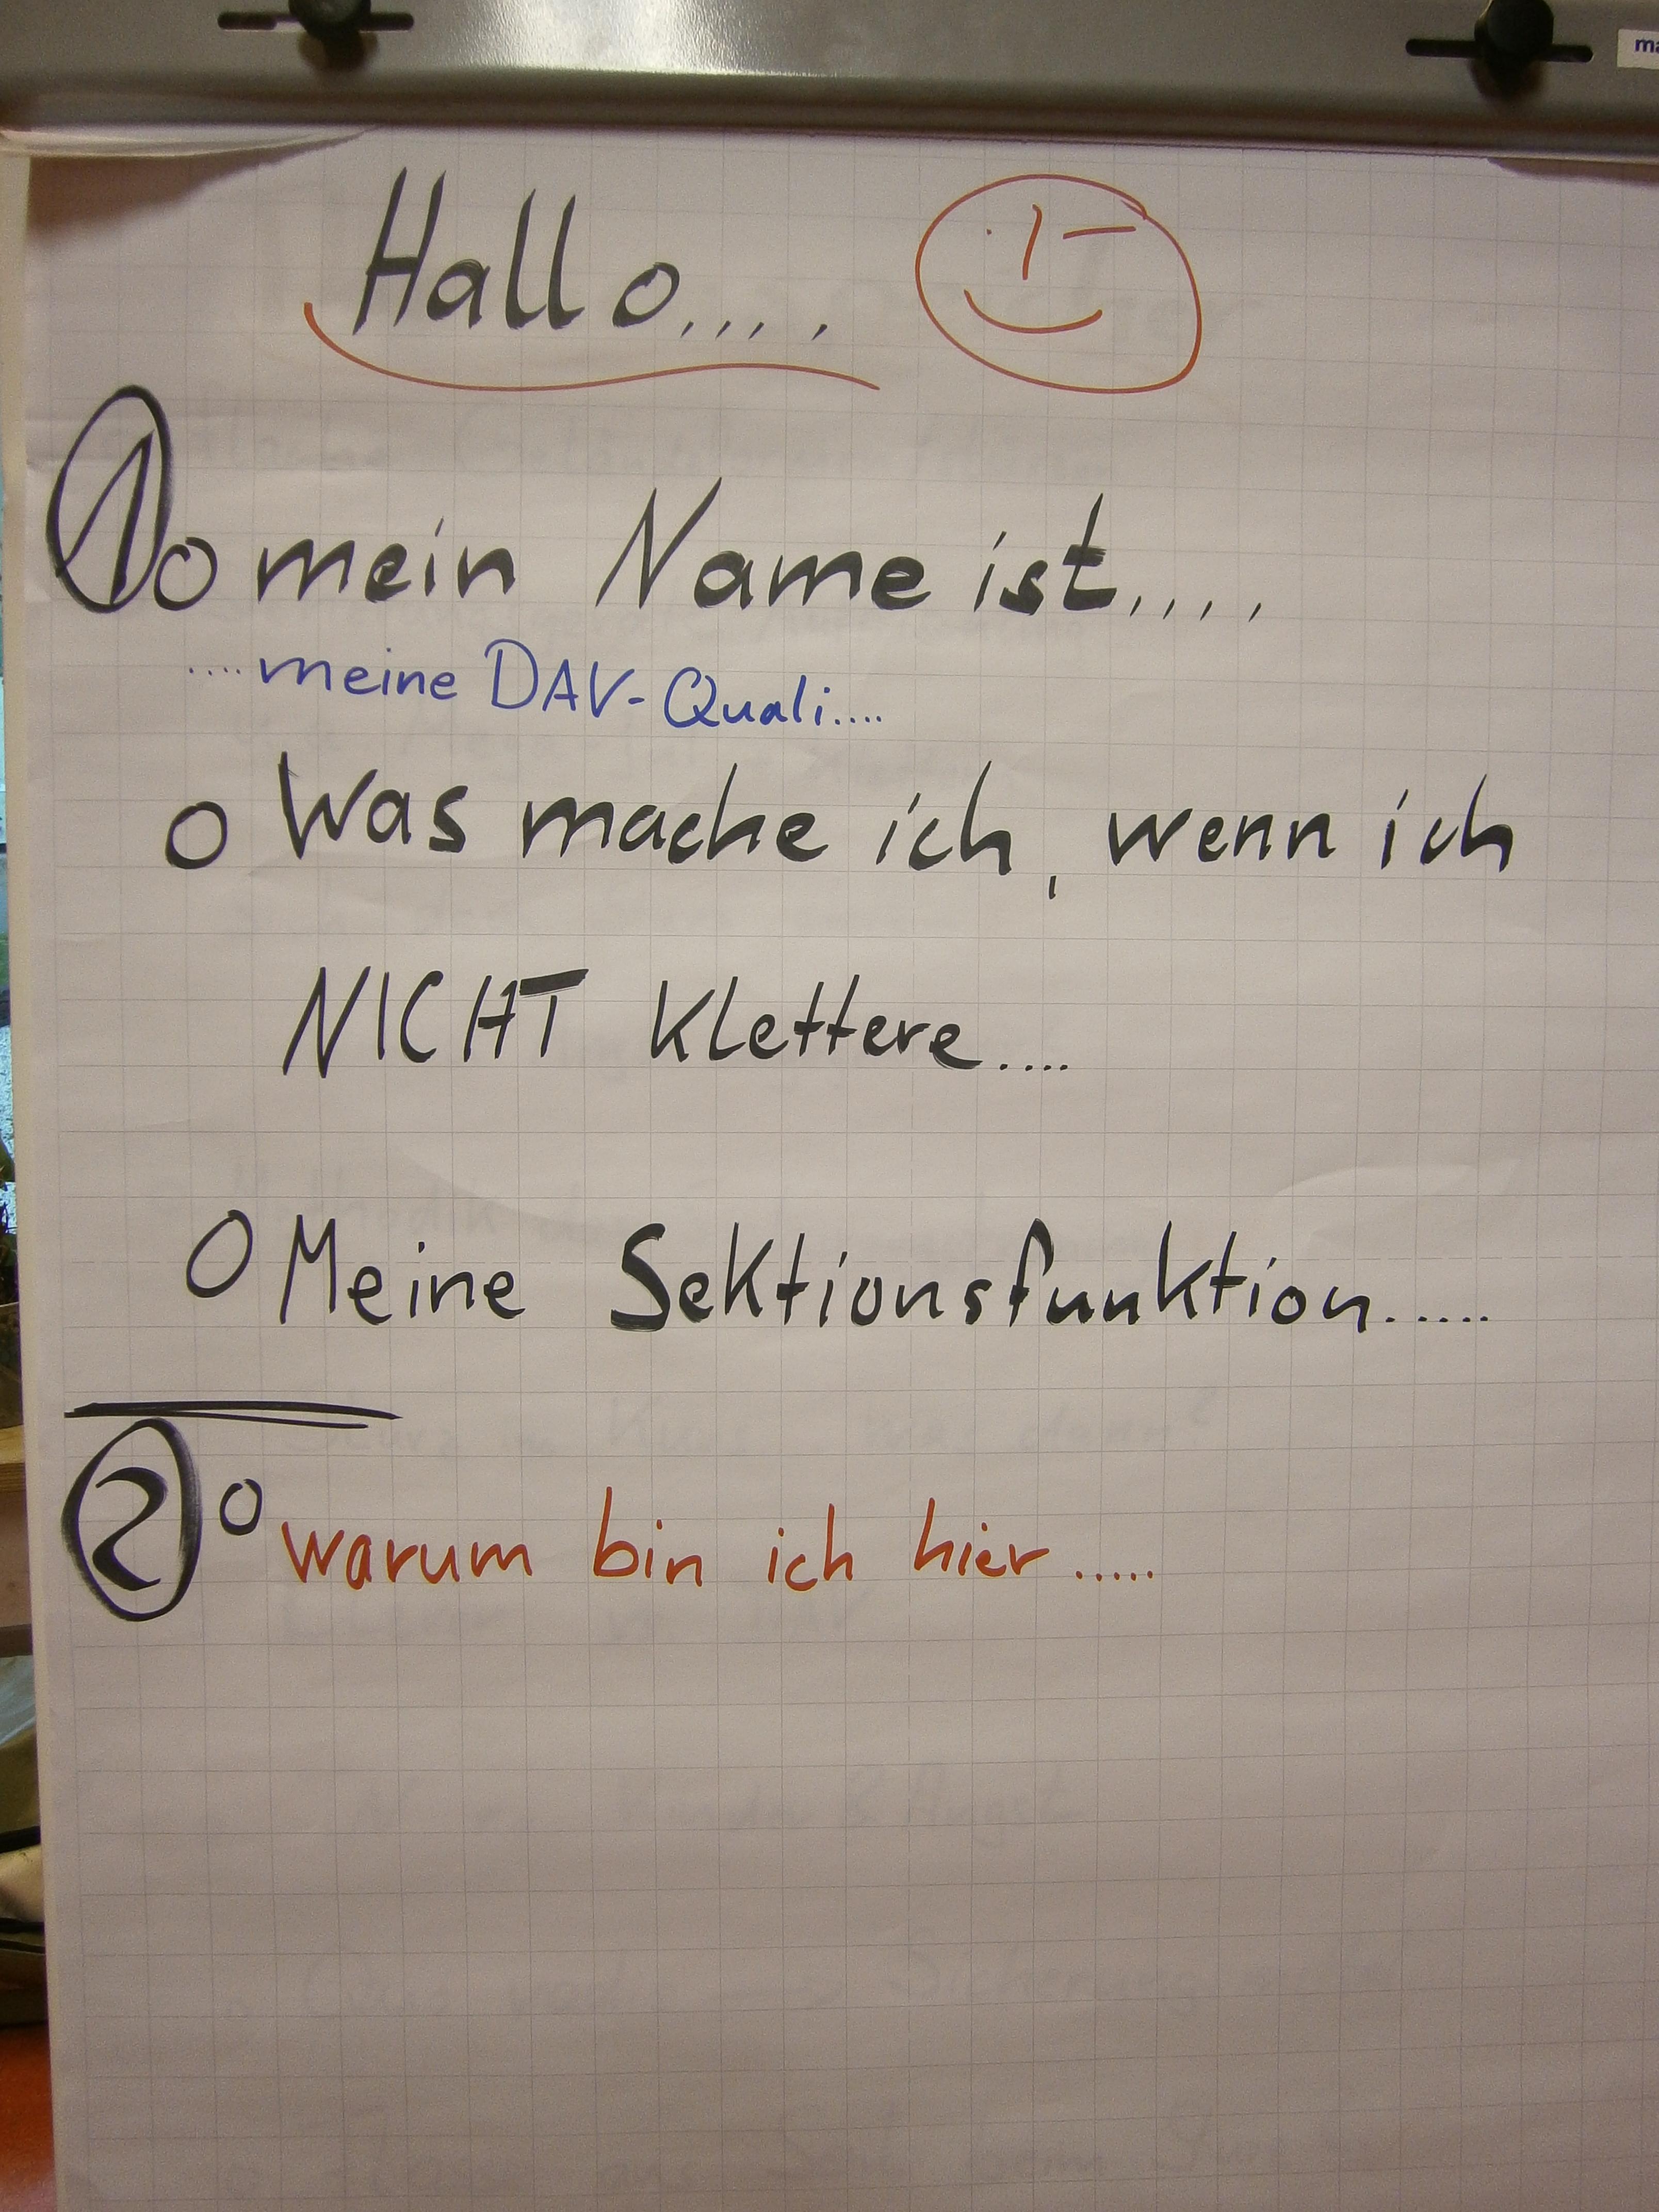 Hallo....
1 o mein Name ist....
....meine DAV-Quali....
o Was mache ich, wenn ich
NICHT Klettere....
o Meine Sektionsfunktion......
2 o warum bin ich hier.....